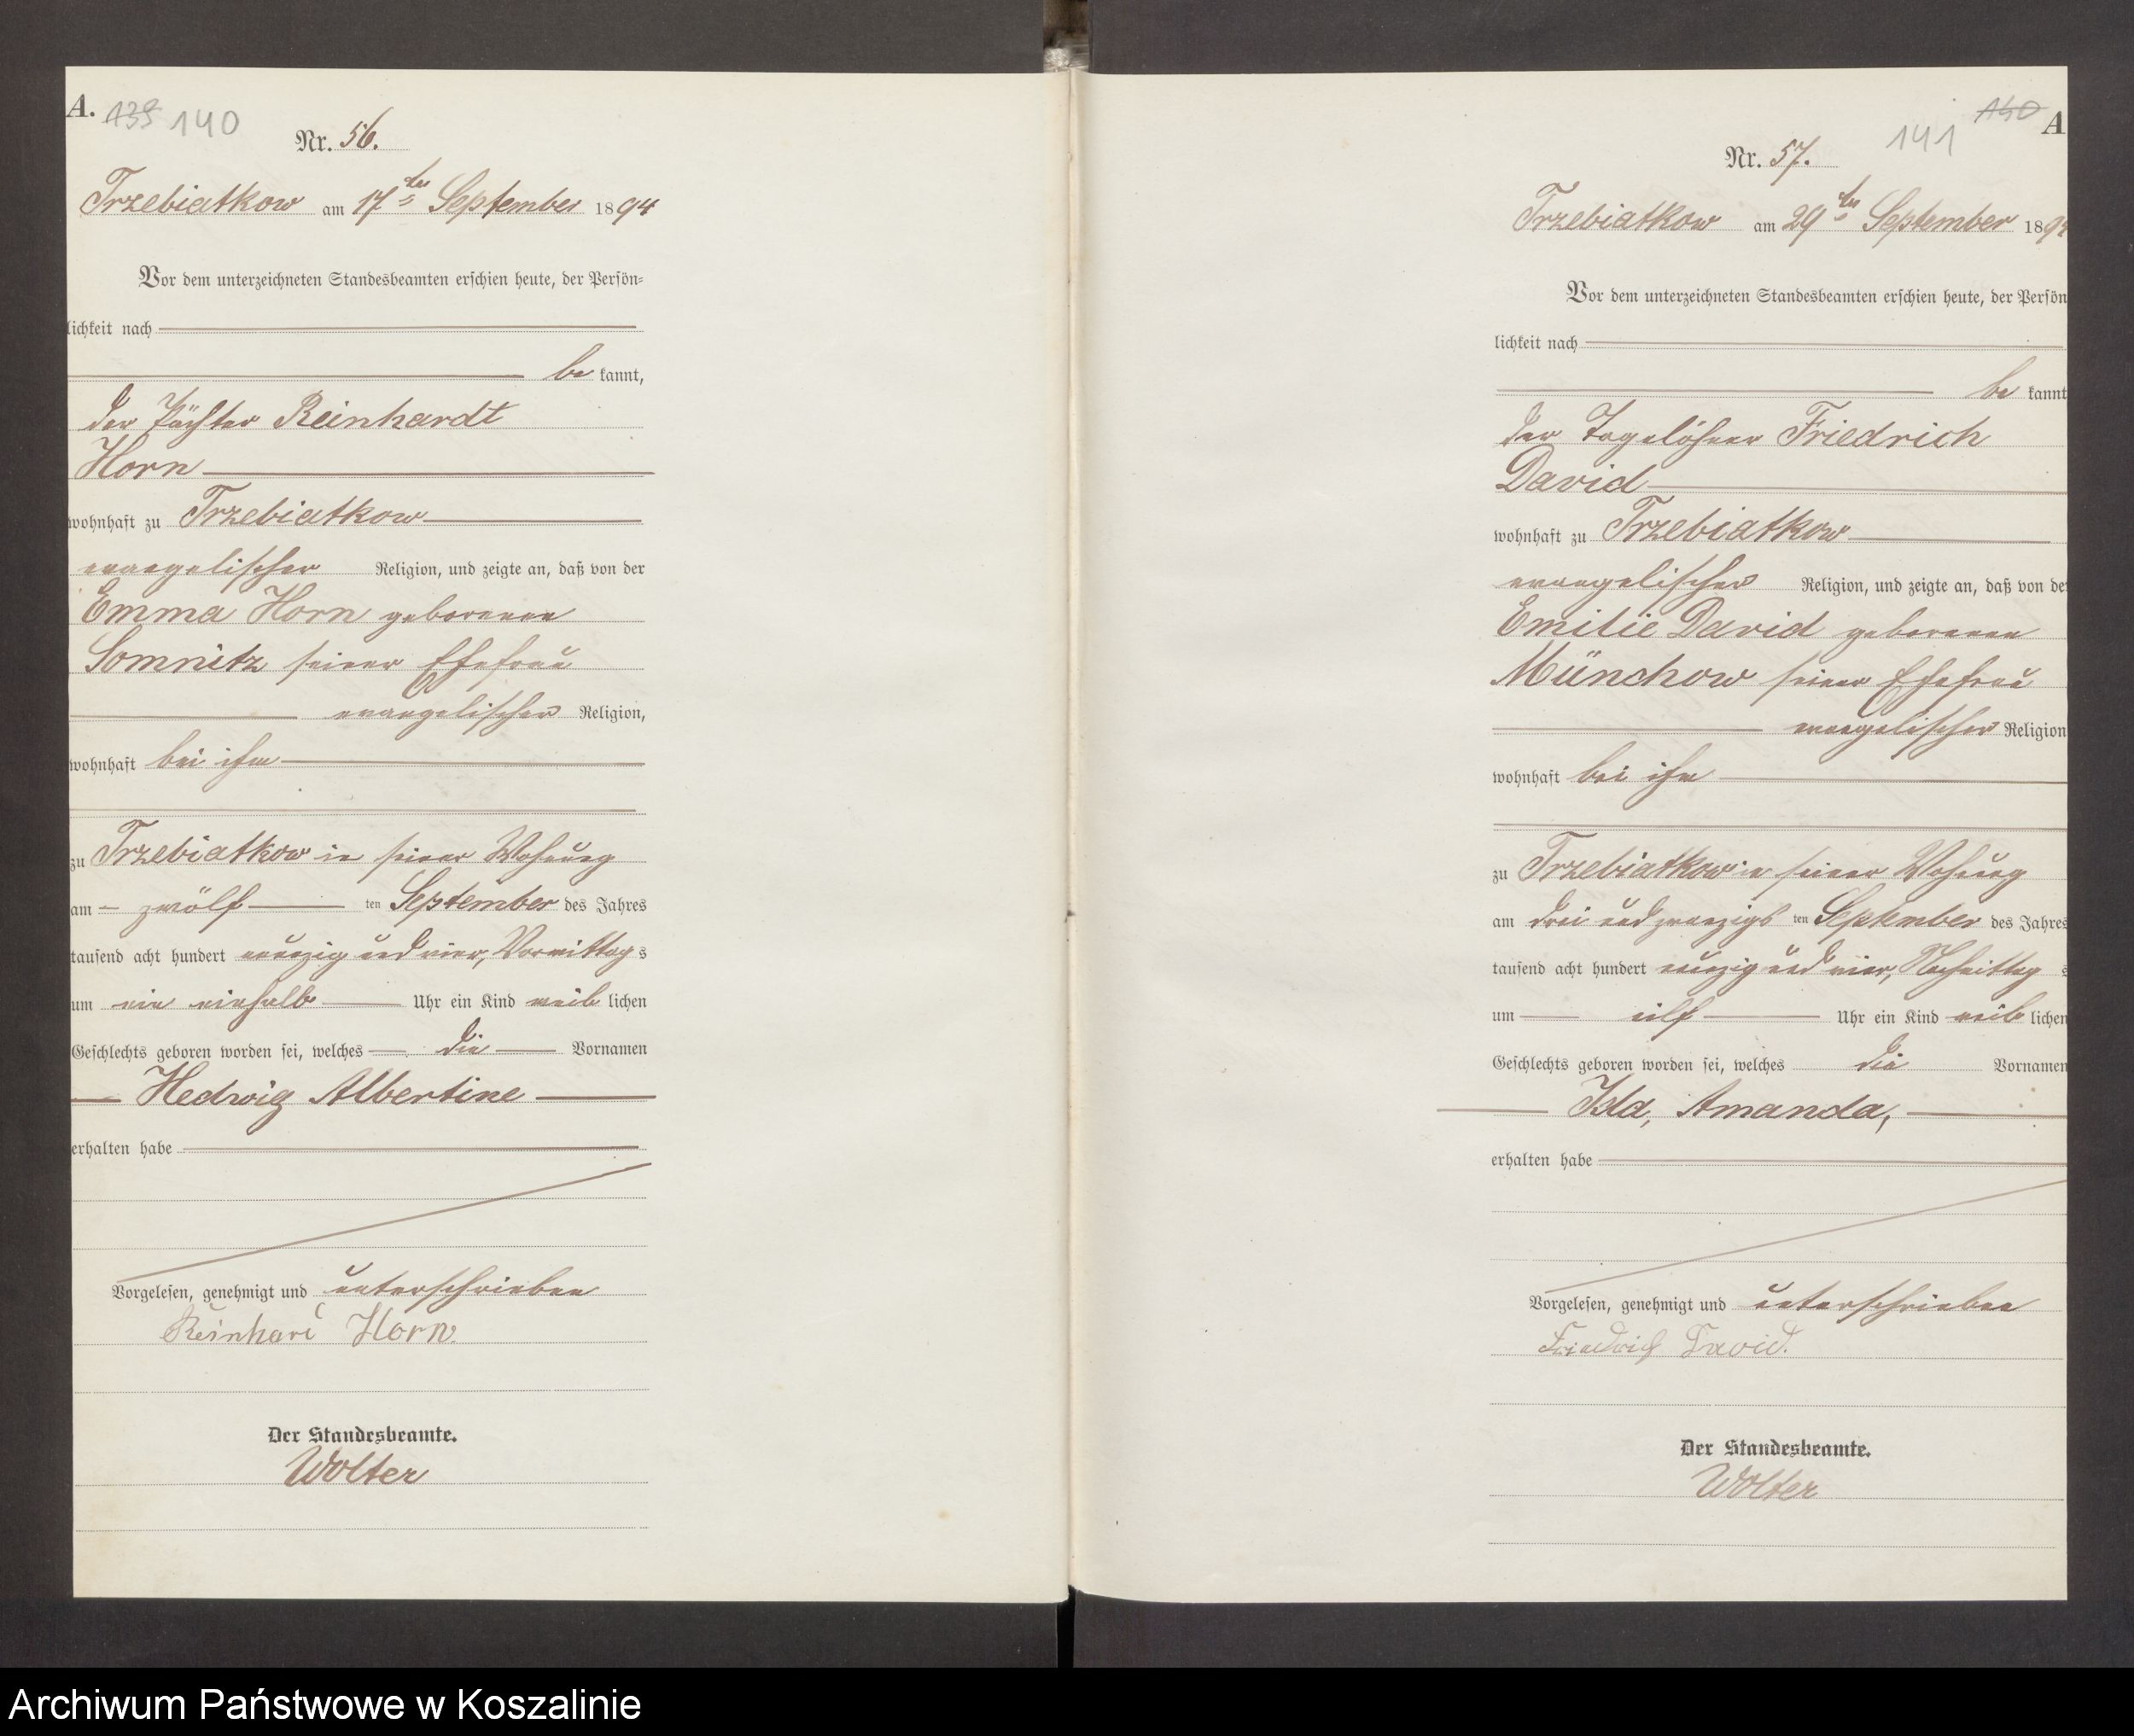 A. 139 140
Nr. 56.
Trzebiatkow am 17ten September 1894
Vor dem unterzeichneten Standesbeamten erschien heute, der Persön-
lichkeit nach
be kannt,
der Pächter Reinhardt
Horn
wohnhaft zu Trzebiatkow
evangelischer Religion, und zeigte an, daß von der
Emma Horn geborenen
Somnitz seiner Ehefrau
evangelischer Religion,
wohnhaft bei ihm
zu Trzebiatkow in seiner Wohnung
am zwölf ten September des Jahres
tausend acht hundert neunzig und vier, Vormittag s
um ein einhalb Uhr ein Kind weib lichen
Geschlechts geboren worden sei, welches die Vornamen
Hedwig Albertine
erhalten habe
Vorgelesen, genehmigt und unterschrieben
Reinhard Horn
Der Standesbeamte.
Wolter
140 A
141
Nr. 57.
Trzebiatkow am 29ten September 1894
Vor dem unterzeichneten Standesbeamten erschien heute, der Persön
lichkeit nach
be kannt
der Tagelöhner Friedrich
David
wohnhaft zu Trzebiatkow
evangelischer Religion, und zeigte an, daß von der
Emilie David geborenen
Münchow seiner Ehefrau
evangelischer Religion
wohnhaft bei ihm
zu Trzebiatkow in seiner Wohnung
am drei und zwanzigs ten September des Jahres
tausend acht hundert neunzig und vier, Nachmittag s
um eilf Uhr ein Kind weib lichen
Geschlechts geboren worden sei, welches die Vornamen
Ida, Amanda,
erhalten habe
Vorgelesen, genehmigt und unterschrieben
Friedrich David.
Der Standesbeamte.
Wolter
Archiwum Państwowe w Koszalinie